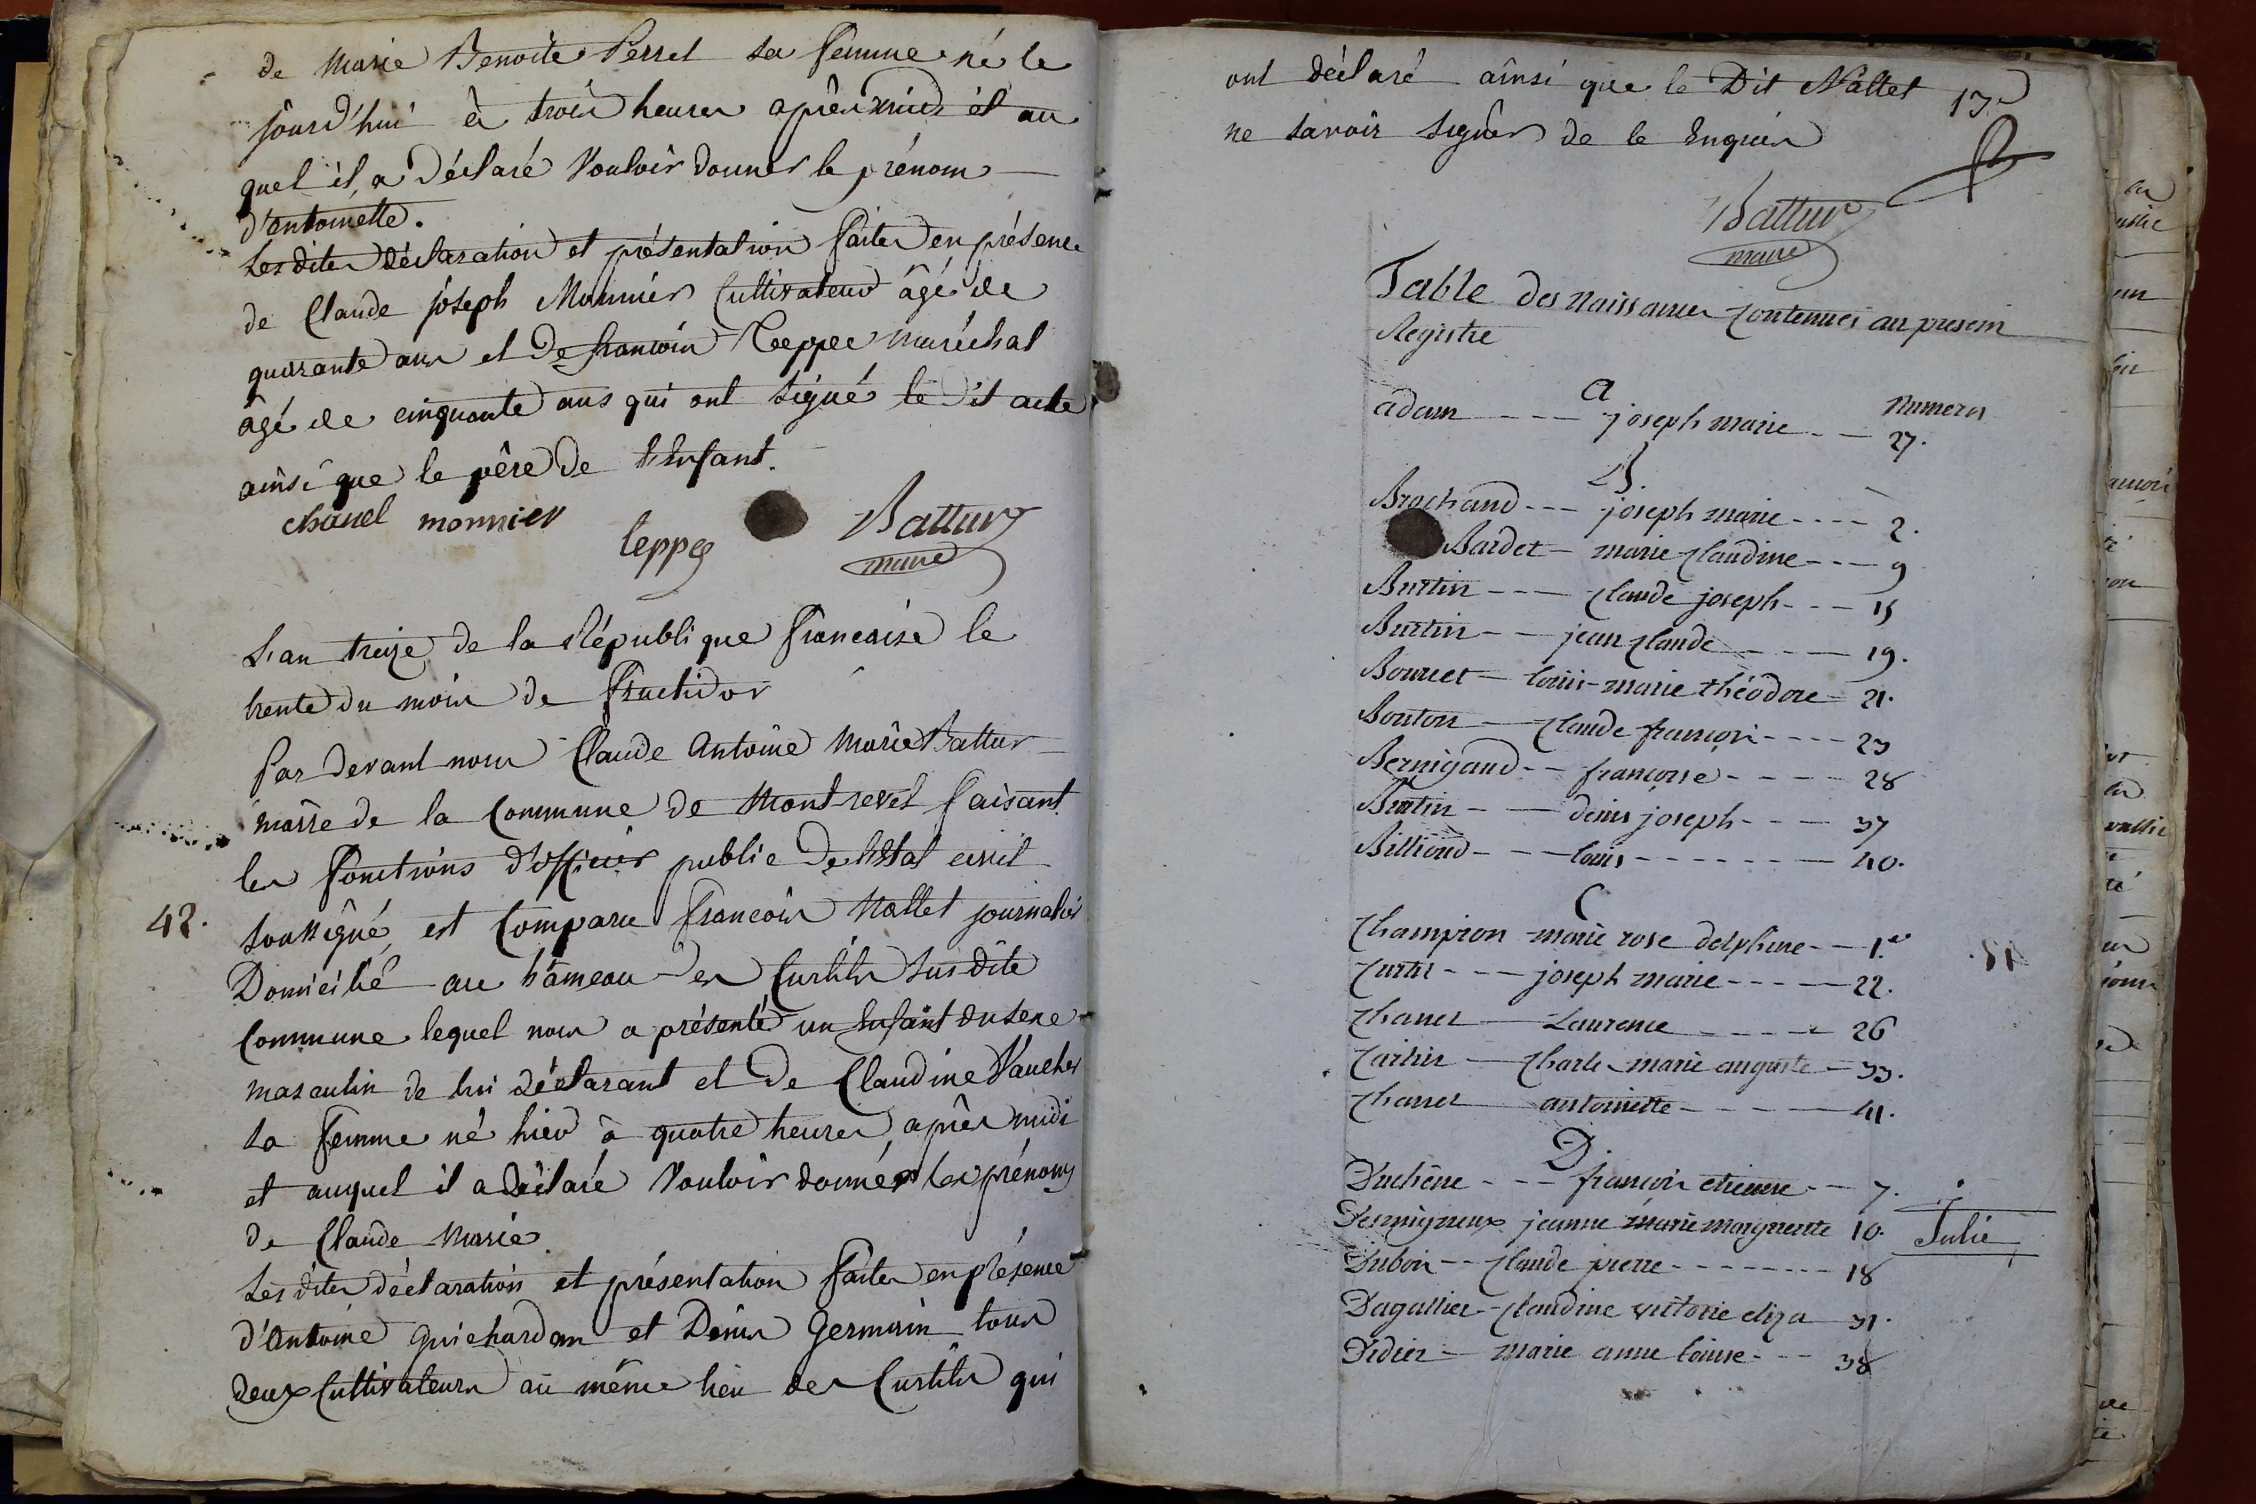 de Marie Benoite Perret sa femme né le
jourd'hui à trois heures après midi et au
quel il a déclaré vouloir donner le prénom
d'antoinette.
Les dites déclaration et présentation faites en présence
de Claude joseph Monnier Cultivateur âgé de
quarante ans et de francois Teppe maréchal
âgé de cinquante ans qui ont signé le dit acte
ainsi que le père de l'Enfant.
chanel monnier teppe Battur
maire
L'an treize de la République francaise le
trente du mois de fructidor
Par devant nous Claude Antoine Marie Battur
maire de la Commune de Montrevel faisant
les fonctions d'officier public de l'Etat civil
42. soussigné, est Comparu francois Nallet journalier
Domicilié au hameau des Curtils sus dite
Commune lequel nous a présenté un Enfant du sexe
masculin de lui déclarant et de Claudine Vaucher
sa femme né hier à quatre heures après midi
et auquel il a déclaré vouloir donner les prénoms
de Claude Marie
Les dites déclaration et présentation faites en présence
d'Antoine Guichardan et Denis Germain tous
deux Cultivateurs au même lieu des Curtils qui
ont déclaré ainsi que le Dit Nallet
ne savoir signer de ce Enquis
13.
Battur
maire
Table des Naissances Contenues au present
Registre
a
Numeros
adam --- joseph marie -- 27.
B.
Brochand --- joseph marie ---- 2.
Bardet - marie Claudine --- 9
Burtin --- Claude joseph --- 15
Burtin -- jean Claude --- 19.
Bonnet - louis-marie théodore - 21.
Bouton - Claude françois ---- 23
Bernigaud -- françoise ---- 28
Burtin --- denis joseph --- 37
Billioud --- louis ------ 40.
C
Champion - marie rose delphine -- 1.er
Curtil --- joseph marie ---- 22.
Chanel - Laurence ---- 26
Cartier - Charle marie auguste - 33.
Chanel - antoinette ---- 41.
D.
Duchêne --- françois etienne -- 7.
Desmigneux jeanne marie marguerite 10. Julie
Dubois -- Claude pierre -------- 18
Dagallier - Claudine victorie eliza 31.
Didier - marie anne louise --- 38